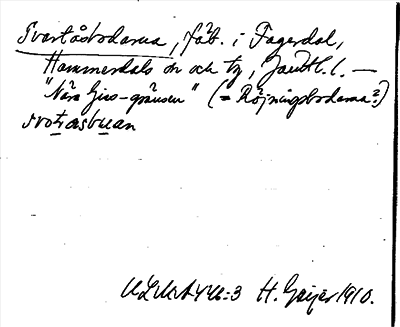 Svartåsbodarna, fäb. i Fagerdal,
Hammerdals sn och tg, Jämtl. l. —
"Nära Giss-gränsen" (= Röjningsbodarna?)
svot̲æsbu̲an
ULMA 446:3 H. Geijer 1910.